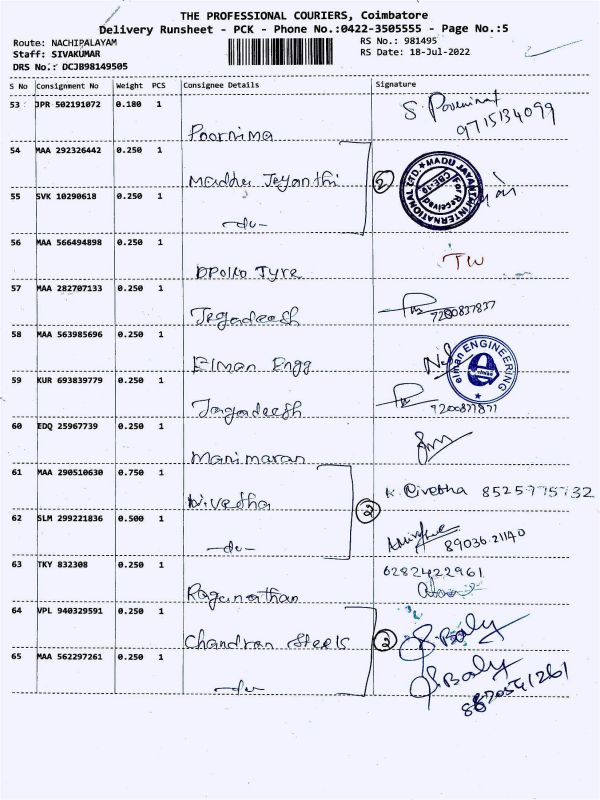 THE PROFESSIONAL COURIERS, Coimbatore
Delivery Runsheet - PCK - Phone No.:0422-3505555 - Page No.:5
Route: NACHIPALAYAM RS No.: 981495
Staff: SIVAKUMAR RS Date: 18-Jul-2022
DRS No.: DCJB98149505
S No Consignment No Weight PCS Consignee Details Signature
53 JPR 502191072 0.180 1
Poornima 9715134099
54 MAA 292326442 0.250 1
Madhu Jeyanthi 2
MADU JAYANTHI INTERNATIONAL LTD.
For Received
CBE-19
55 SVK 10290618 0.250 1
-do-
56 MAA 566494898 0.250 1
Apollo Tyre
57 MAA 282707133 0.250 1
Jegadeesh 7200837837
58 MAA 563985696 0.250 1
Elman Engg
elman ENGINEERING
59 KUR 693839779 0.250 1
Jagadeesh
60 EDQ 25967739 0.250 1
Manimaran
61 MAA 290510630 0.750 1
Nivedha 2 8525775732
62 SLM 299221836 0.500 1
-do- 89036-21140
63 TKY 832308 0.250 1
Raganathan 6282422961
64 VPL 940329591 0.250 1
Chandran Steels 2 S. Baly
65 MAA 562297261 0.250 1
-do- S. Baly